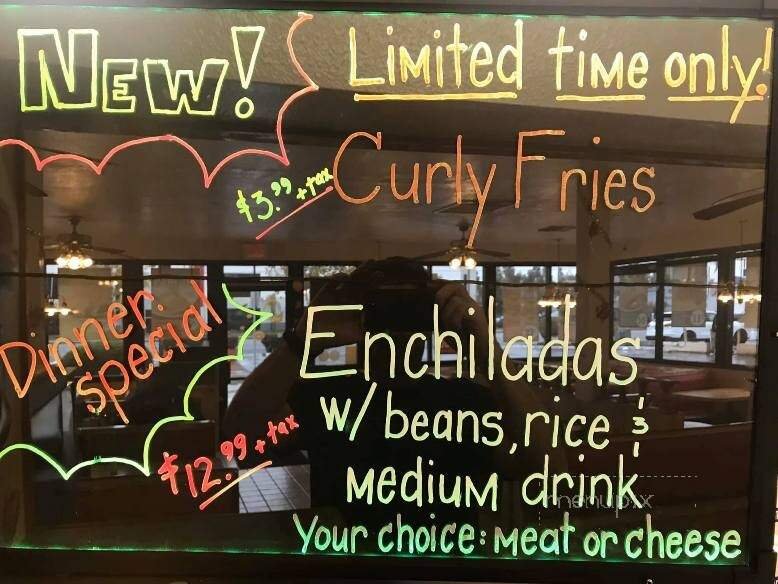 NEW!
Limited time only!
Curly Fries
$3.99 + tax
Dinner
special
Enchiladas
w/ beans, rice &
Medium drink
$12.99 + tax
Your choice: Meat or cheese
menupix